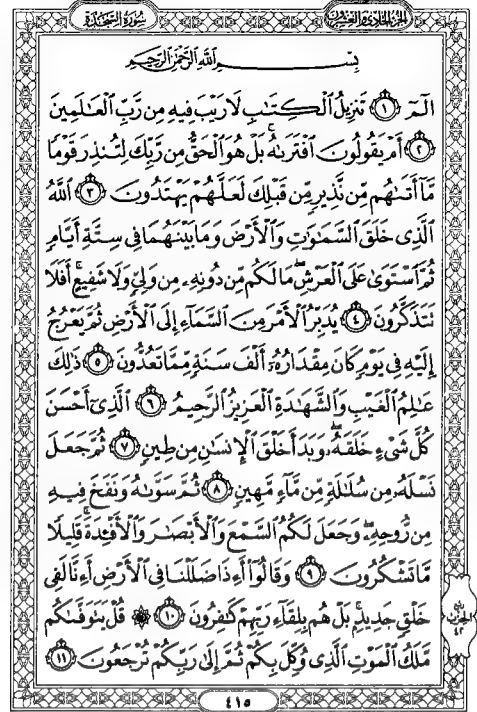 الجزء الحادي والعشرون
سُورَةُ السَّجْدَةِ
بِسْمِ ٱللَّهِ ٱلرَّحْمَٰنِ ٱلرَّحِيمِ
الٓمٓ ۝١ تَنزِيلُ ٱلْكِتَٰبِ لَا رَيْبَ فِيهِ مِن رَّبِّ ٱلْعَٰلَمِينَ
۝٢ أَمْ يَقُولُونَ ٱفْتَرَىٰهُ ۚ بَلْ هُوَ ٱلْحَقُّ مِن رَّبِّكَ لِتُنذِرَ قَوْمًا
مَّآ أَتَىٰهُم مِّن نَّذِيرٍ مِّن قَبْلِكَ لَعَلَّهُمْ يَهْتَدُونَ ۝٣ ٱللَّهُ
ٱلَّذِى خَلَقَ ٱلسَّمَٰوَٰتِ وَٱلْأَرْضَ وَمَا بَيْنَهُمَا فِى سِتَّةِ أَيَّامٍ
ثُمَّ ٱسْتَوَىٰ عَلَى ٱلْعَرْشِ ۖ مَا لَكُم مِّن دُونِهِۦ مِن وَلِىٍّ وَلَا شَفِيعٍ ۚ أَفَلَا
تَتَذَكَّرُونَ ۝٤ يُدَبِّرُ ٱلْأَمْرَ مِنَ ٱلسَّمَآءِ إِلَى ٱلْأَرْضِ ثُمَّ يَعْرُجُ
إِلَيْهِ فِى يَوْمٍ كَانَ مِقْدَارُهُۥٓ أَلْفَ سَنَةٍ مِّمَّا تَعُدُّونَ ۝٥ ذَٰلِكَ
عَٰلِمُ ٱلْغَيْبِ وَٱلشَّهَٰدَةِ ٱلْعَزِيزُ ٱلرَّحِيمُ ۝٦ ٱلَّذِىٓ أَحْسَنَ
كُلَّ شَىْءٍ خَلَقَهُۥ ۖ وَبَدَأَ خَلْقَ ٱلْإِنسَٰنِ مِن طِينٍ ۝٧ ثُمَّ جَعَلَ
نَسْلَهُۥ مِن سُلَٰلَةٍ مِّن مَّآءٍ مَّهِينٍ ۝٨ ثُمَّ سَوَّىٰهُ وَنَفَخَ فِيهِ
مِن رُّوحِهِۦ ۖ وَجَعَلَ لَكُمُ ٱلسَّمْعَ وَٱلْأَبْصَٰرَ وَٱلْأَفْـِٔدَةَ ۚ قَلِيلًا
مَّا تَشْكُرُونَ ۝٩ وَقَالُوٓا۟ أَءِذَا ضَلَلْنَا فِى ٱلْأَرْضِ أَءِنَّا لَفِى
خَلْقٍ جَدِيدٍۭ ۚ بَلْ هُم بِلِقَآءِ رَبِّهِمْ كَٰفِرُونَ ۝١٠ ۞ قُلْ يَتَوَفَّىٰكُم
مَّلَكُ ٱلْمَوْتِ ٱلَّذِى وُكِّلَ بِكُمْ ثُمَّ إِلَىٰ رَبِّكُمْ تُرْجَعُونَ ۝١١
الحزب
٤٢
٤١٥